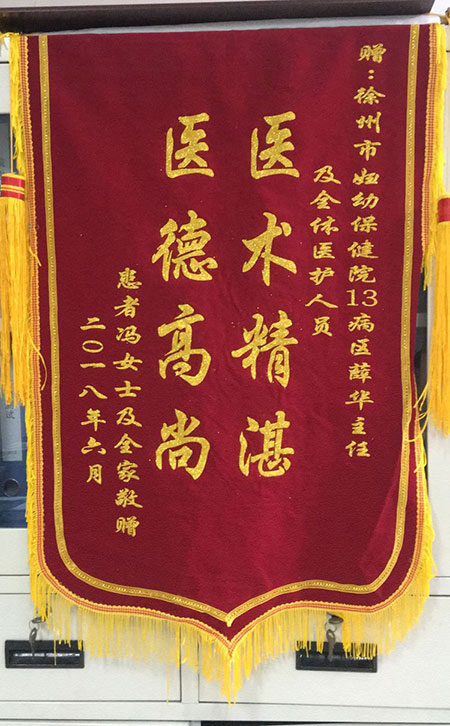 赠：徐州市妇幼保健院13病医薛华主任
及全体医护人员
医术精湛
医德高尚
患者冯女士及全家敬赠
二〇一八年六月